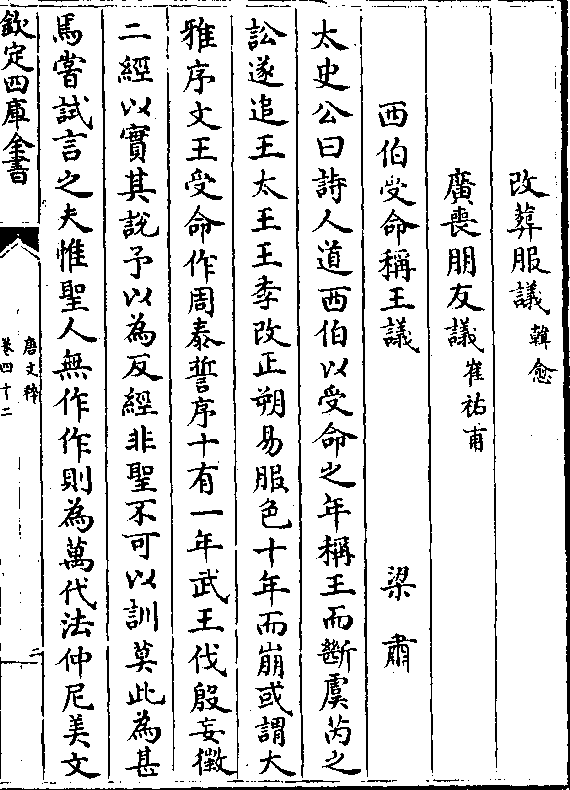 改葬服議韓愈
廣喪朋友議崔祐甫
西伯受命稱王議 梁肅
太史公曰詩人道西伯以受命之年稱王而斷虞芮之
訟遂追王太王王季改正朔易服色十年而崩或謂大
雅序文王受命作周泰誓序十有一年武王伐殷妄徵
二經以實其說予以為反經非聖不可以訓莫此為甚
焉嘗試言之夫惟聖人無作作則為萬代法仲尼美文
欽定四庫全書
唐文粹
卷四十二
二